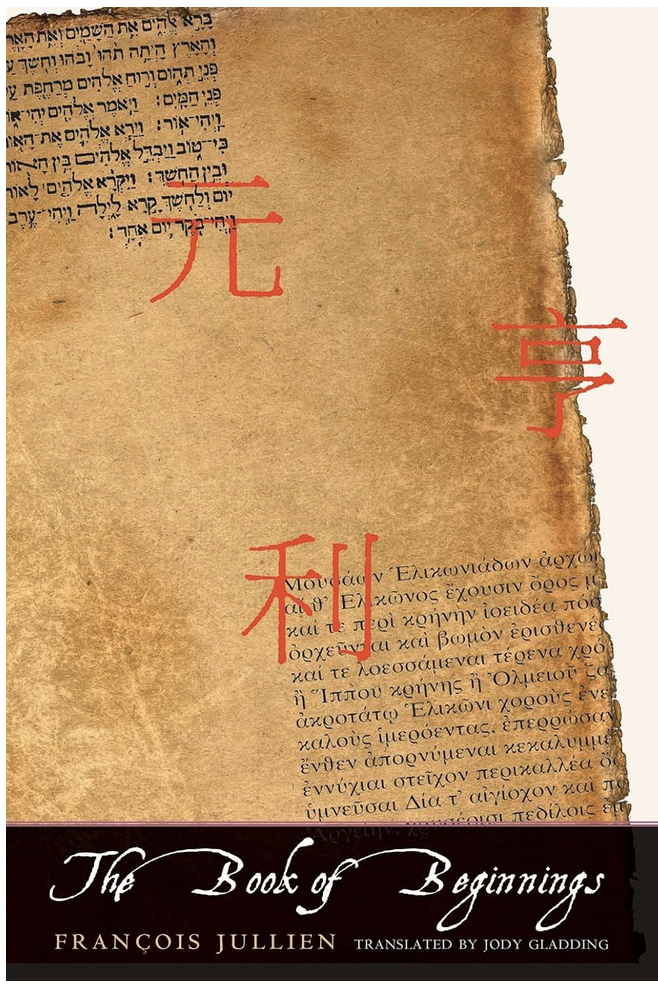 בָּרָא אֱלֹהִים אֵת הַשָּׁמַיִם וְאֵת הָאָרֶ
וְהָאָרֶץ הָיְתָה תֹהוּ וָבֹהוּ וְחֹשֶׁךְ עַ
פְּנֵי תְהוֹם וְרוּחַ אֱלֹהִים מְרַחֶפֶת עַ
פְּנֵי הַמָּיִם׃ וַיֹּאמֶר אֱלֹהִים יְהִי־אוֹ
וַיְהִי־אוֹר׃ וַיַּרְא אֱלֹהִים אֶת־הָאוֹ
כִּי־טוֹב וַיַּבְדֵּל אֱלֹהִים בֵּין הָאוֹר
וּבֵין הַחֹשֶׁךְ׃ וַיִּקְרָא אֱלֹהִים לָאוֹר
יוֹם וְלַחֹשֶׁךְ קָרָא לָיְלָה וַיְהִי־עֶרֶב
וַיְהִי־בֹקֶר יוֹם אֶחָד׃
元
亨
利
Μουσάων Ἑλικωνιάδων ἀρχώ
αἵ θ’ Ἑλικῶνος ἔχουσιν ὄρος μ
καί τε περὶ κρήνην ἰοειδέα πόσ
ὀρχεῦνται καὶ βωμὸν ἐρισθενέ
καί τε λοεσσάμεναι τέρενα χρό
ἢ Ἵππου κρήνης ἢ Ὀλμειοῦ ζα
ἀκροτάτῳ Ἑλικῶνι χοροὺς ἐνε
καλοὺς ἱμερόεντας, ἐπερρώσαν
ἔνθεν ἀπορνύμεναι κεκαλυμμέ
ἐννύχιαι στεῖχον περικαλλέα ὄ
ὑμνεῦσαι Δία τ’ αἰγίοχον καὶ π
The Book of Beginnings
FRANÇOIS JULLIEN TRANSLATED BY JODY GLADDING